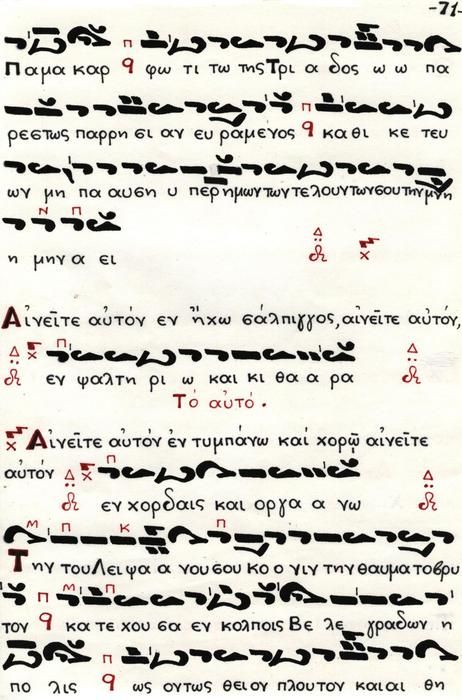 -71-
Παμακαρ φω τι τω της Τρι α δος ω ω πα
ρεστως παρρη σι αν ευ ραμενος καθι κε τευ
ων μη πα αυση υ περ ημων των τελουντων σου την μνη
Ν Π
η μην α ει
Αἰνεῖτε αὐτόν εν ἤχω σάλπιγγος, αἰνεῖτε αὐτόν,
εν ψαλτη ρι ω και κι θα α ρα
Τό αὐτό.
Αἰνεῖτε αὐτόν ἐν τυμπάνω καί χορῷ αἰνεῖτε
αὐτόν
εν χορδαις και οργα α νω
Μ Π Κ Π
Την του Λειψα α νου σου κο ο νιν την θαυματοβρυ
τον κα τε χου σα εν κολποις Βε λε γραδων η
πο λις ως οντως θειον πλουτον και αι θη